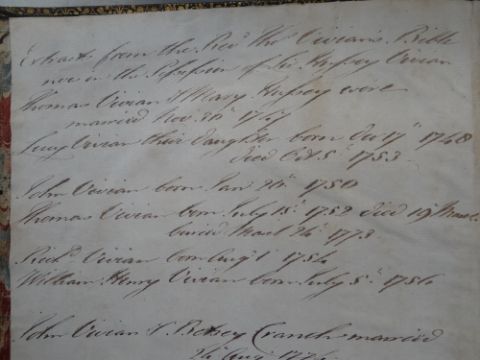 Extracts from the Revd Thos Vivian's Bible
now in the Possession of Sir Hussey Vivian
Thomas Vivian & Mary Hussey were
married Nov. 30th 1747
Lucy Vivian their daughter born Oct 17th 1748
died Oct 5th 1753
John Vivian born Jan 26th 1750
Thomas Vivian born July 15th 1752 died 19th March
buried March 24th 1773
Richd Vivian born Augt 1st 1754
William Henry Vivian born July 5th 1756
John Vivian & Betsey Cranch married